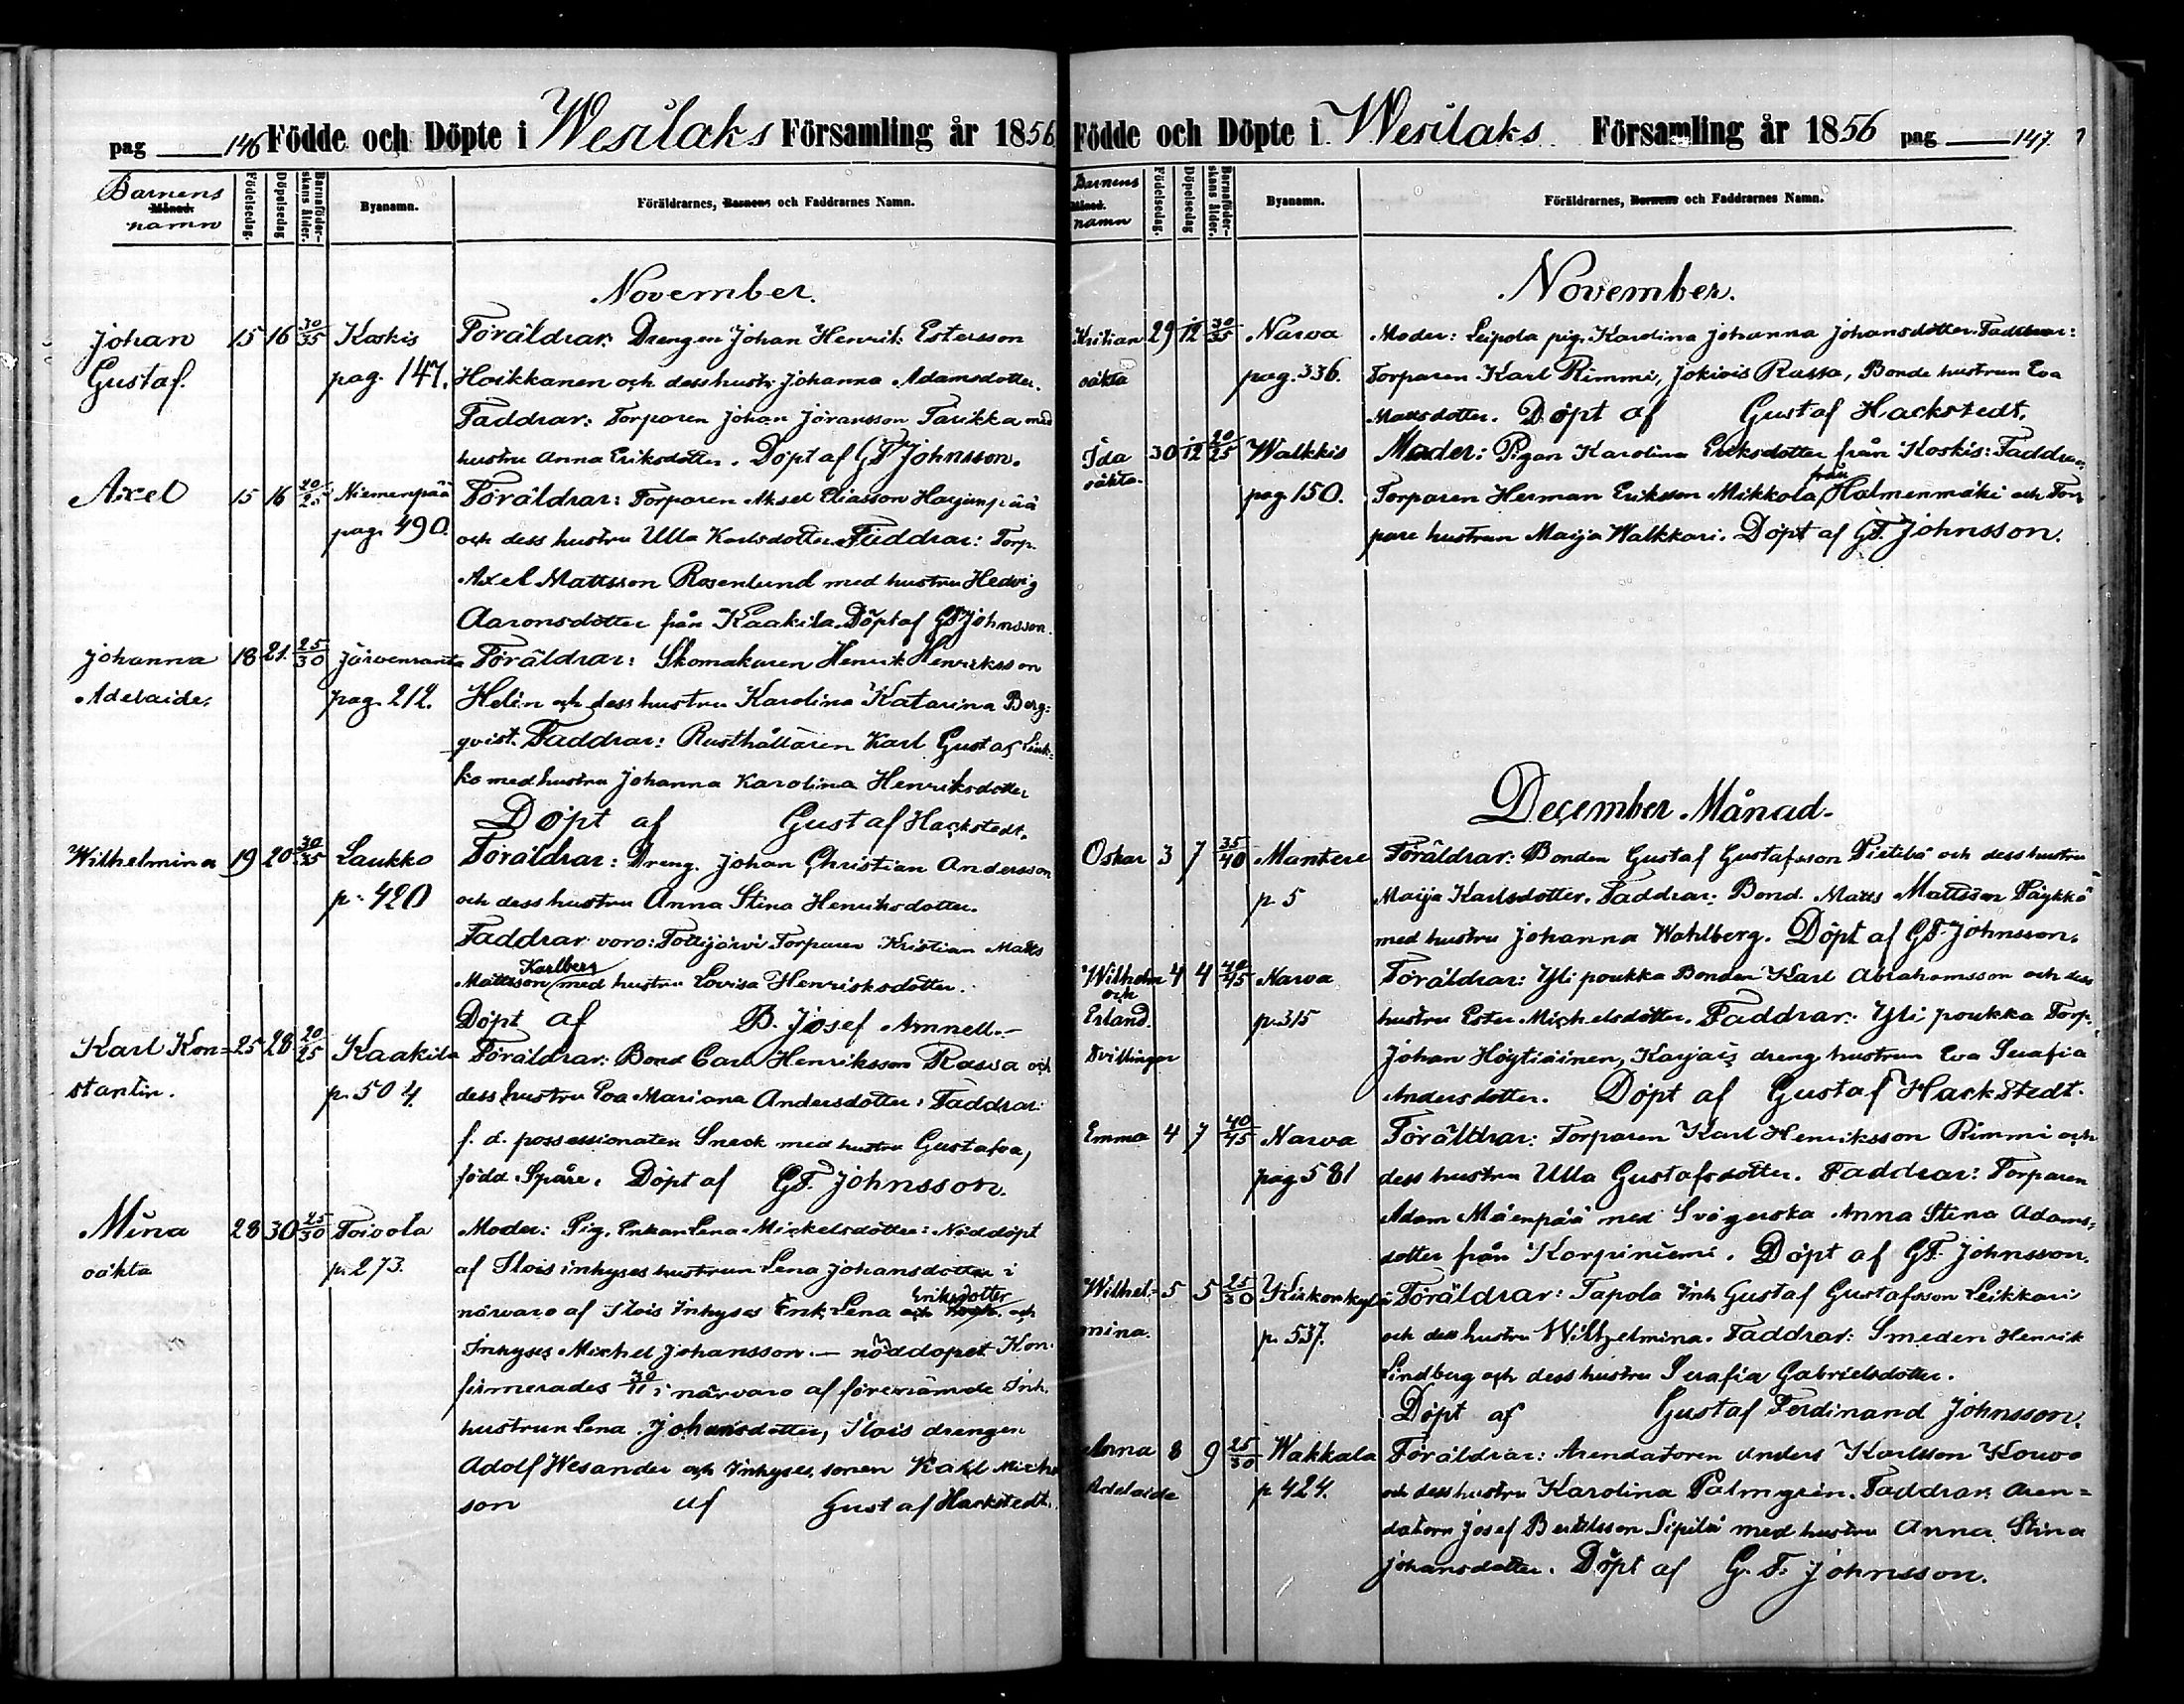 pag 146 Födde och Döpte i Wesilaks Församling år 1856
Barnens Månad. namn
Födelsedag.
Döpelsedag
Barnaföderskans ålder.
Byanamn.
Föräldrarnes, Barnens och Faddrarnes Namn.
November.
Johan 15 16 30/35 Koskis Föräldrar: Drengen Johan Henrik Estersson
Gustaf. pag. 147. Hoikkanen och dess hustr. Johanna Adamsdotter.
Faddrar: Torparen Johan Jöransson Tarikka med
hustru Anna Eriksdotter. Döpt af GF Johnsson.
Axel 15 16 20/25 Niemenpää Föräldrar: Torparen Aksel Eliasson Harjunpää
pag. 490. och dess hustru Ulla Karlsdotter. Faddrar: Torp.
Axel Mattsson Rosenlund med hustru Hedvig
Aaronsdotter från Kaakila. Döpt af GF Johnsson.
Johanna 18 21. 25/30 Järvenranta Föräldrar: Skomakaren Henrik Henriksson
Adelaide. pag. 212. Helin och dess hustru Karolina Katarina Berg=
qvist. Faddrar: Rusthållaren Karl Gustaf
ko med hustru Johanna Karolina Henriksdotter
Döpt af Gustaf Hackstedt.
Wilhelmina 19 20 30/35 Laukko Föräldrar: Dreng. Johan Christian Andersson
p. 420 och dess hustru Anna Stina Henriksdotter.
Faddrar voro: Tottijärvi Torparen Kristian Matts
Mattsson Karlberg med hustru Lovisa Henriksdotter.
Döpt af B. Josef Amnell.-
Karl Kon= 25 28 20/25 Kaakila Föräldrar: Bond Carl Henriksson Rassa och
stantin. p. 504. dess hustru Eva Mariana Andersdotter: Faddrar:
f. d. possessionaten Sneck med hustru Gustafva,
född Spåre. Döpt af GF. Johnsson.
Mina 28 30 25/30 Toivola Moder: Pig. Enkan Lena Mickelsdotter: Nöddöpt
oäkta p. 273. af Ilois inhyses hustrun Lena Johansdotter i
närvaro af Ilois Inhyses Enk. Lena Eriksdotter och
Inhyses Michel Johansson. — nöddopet Kon
firmerades 30/11 i närvaro af förenämde Inh.
hustrun Lena Johansdotter, Ilois drengen
Adolf Wesander och Inhyses sonen Karl Michel
son af Gustaf Hackstedt.
Födde och Döpte i Wesilaks Församling år 1856 pag 147.
Barnens Månad. namn
Födelsedag.
Döpelsedag
Barnaföderskans ålder.
Byanamn.
Föräldrarnes, Barnens och Faddrarnes Namn.
November.
Kristian 29 12 30/35 Narva Moder: Leipola pig. Karolina Johanna Johansdotter. Faddrar:
oäkta pag. 336. Torparen Karl Rimmi, Jokiois Rassa, Bonde hustrun Eva
Mattsdotter. Döpt af Gustaf Hackstedt.
Ida 30 12 20/25 Walkkis Moder: Pigan Karolina Eriksdotter från Koskis: Faddrar:
oäkta. pag. 150. Torparen Herman Eriksson Mikkola från Halmenmäki och Tor
pare hustrun Maija Walkkari. Döpt af GF. Johnsson.
December Månad-
Oskar 3 7 35/40 Mantere Föräldrar: Bonden Gustaf Gustafsson Pietilä och dess hustru
p. 5 Maija Karlsdotter. Faddrar: Bond. Matts Mattsson Päykkö
med hustru Johanna Wahlberg. Döpt af GF. Johnsson.
Wilhelm 4 4 40/45 Narva Föräldrar: Yli poukka Bonden Karl Abrahamsson och dess
och Erland. p. 315 hustru Ester Michelsdotter. Faddrar: Yli poukka Torp.
Tvillingar Johan Höytiäinen, Karjais dreng hustrun Eva Serafia
Andersdotter. Döpt af Gustaf Hackstedt.
Emma 4 7 40/45 Narva Föräldrar: Torparen Karl Henriksson Rimmi och
pag. 581 dess hustru Ulla Gustafsdotter. Faddrar: Torparen
Adam Mäenpää med Svägerska Anna Stina Adams=
dotter från Korpiniemi. Döpt af GF. Johnsson.
Wilhel= 5 5 25/30 Krkonkylä Föräldrar: Tapola Inh Gustaf Gustafsson Leikkari
mina. p. 537. och dess hustru Wilhelmina. Faddrar: Smeden Henrik
Lindberg och dess hustru Serafia Gabrielsdotter.
Döpt af Gustaf Ferdinand Johnsson.
Anna 8 9 25/30 Wakkala Föräldrar: Arendatoren Anders Karlsson Kouvo
Adelaide p. 424. och dess hustru Karolina Palmgrén. Faddrar: Aren=
datorn Josef Bertilsson Sipilä med hustru Anna Stina
Johansdotter. Döpt af G. F. Johnsson.